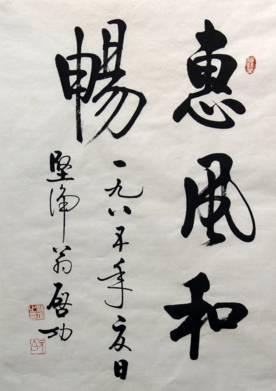 惠風和
暢
一九八年夏日
堅淨翁啓功